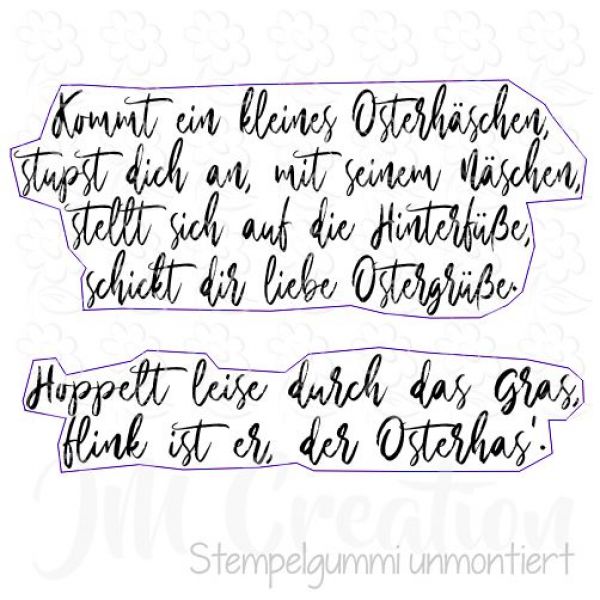 Kommt ein kleines Osterhäschen,
stupst dich an, mit seinem Näschen,
stellt sich auf die Hinterfüße,
schickt dir liebe Ostergrüße.
Hoppelt leise durch das Gras,
flink ist er, der Osterhas'.
JM Creation
Stempelgummi unmontiert